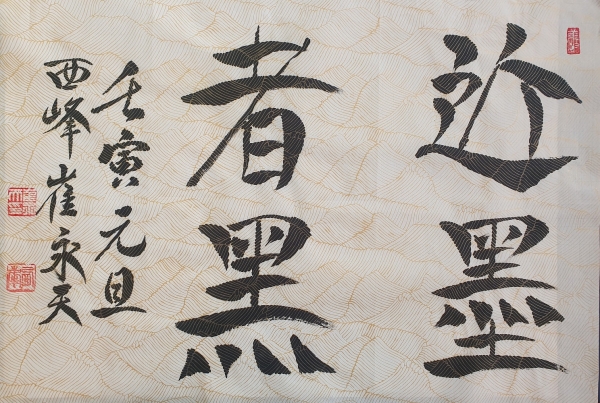 近墨
者黑
壬寅元旦
西峰崔永天